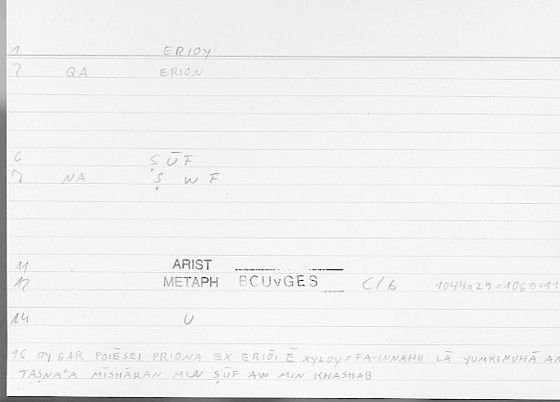 1 ERIOY
2 QA ERION
6 ṢŪF
7 NA Ṣ W F
11 ARIST
12 METAPH BCUvGES C/b 1044a29=1069:11
14 U
16 OY GAR POIĒSEI PRIONA EX ERIŌI Ē XYLOY=FA-INNAHU LĀ YUMKINUHĀ AN
TAṢNAʿA MĪSHĀRAN MIN ṢŪF AW MIN KHASHAB